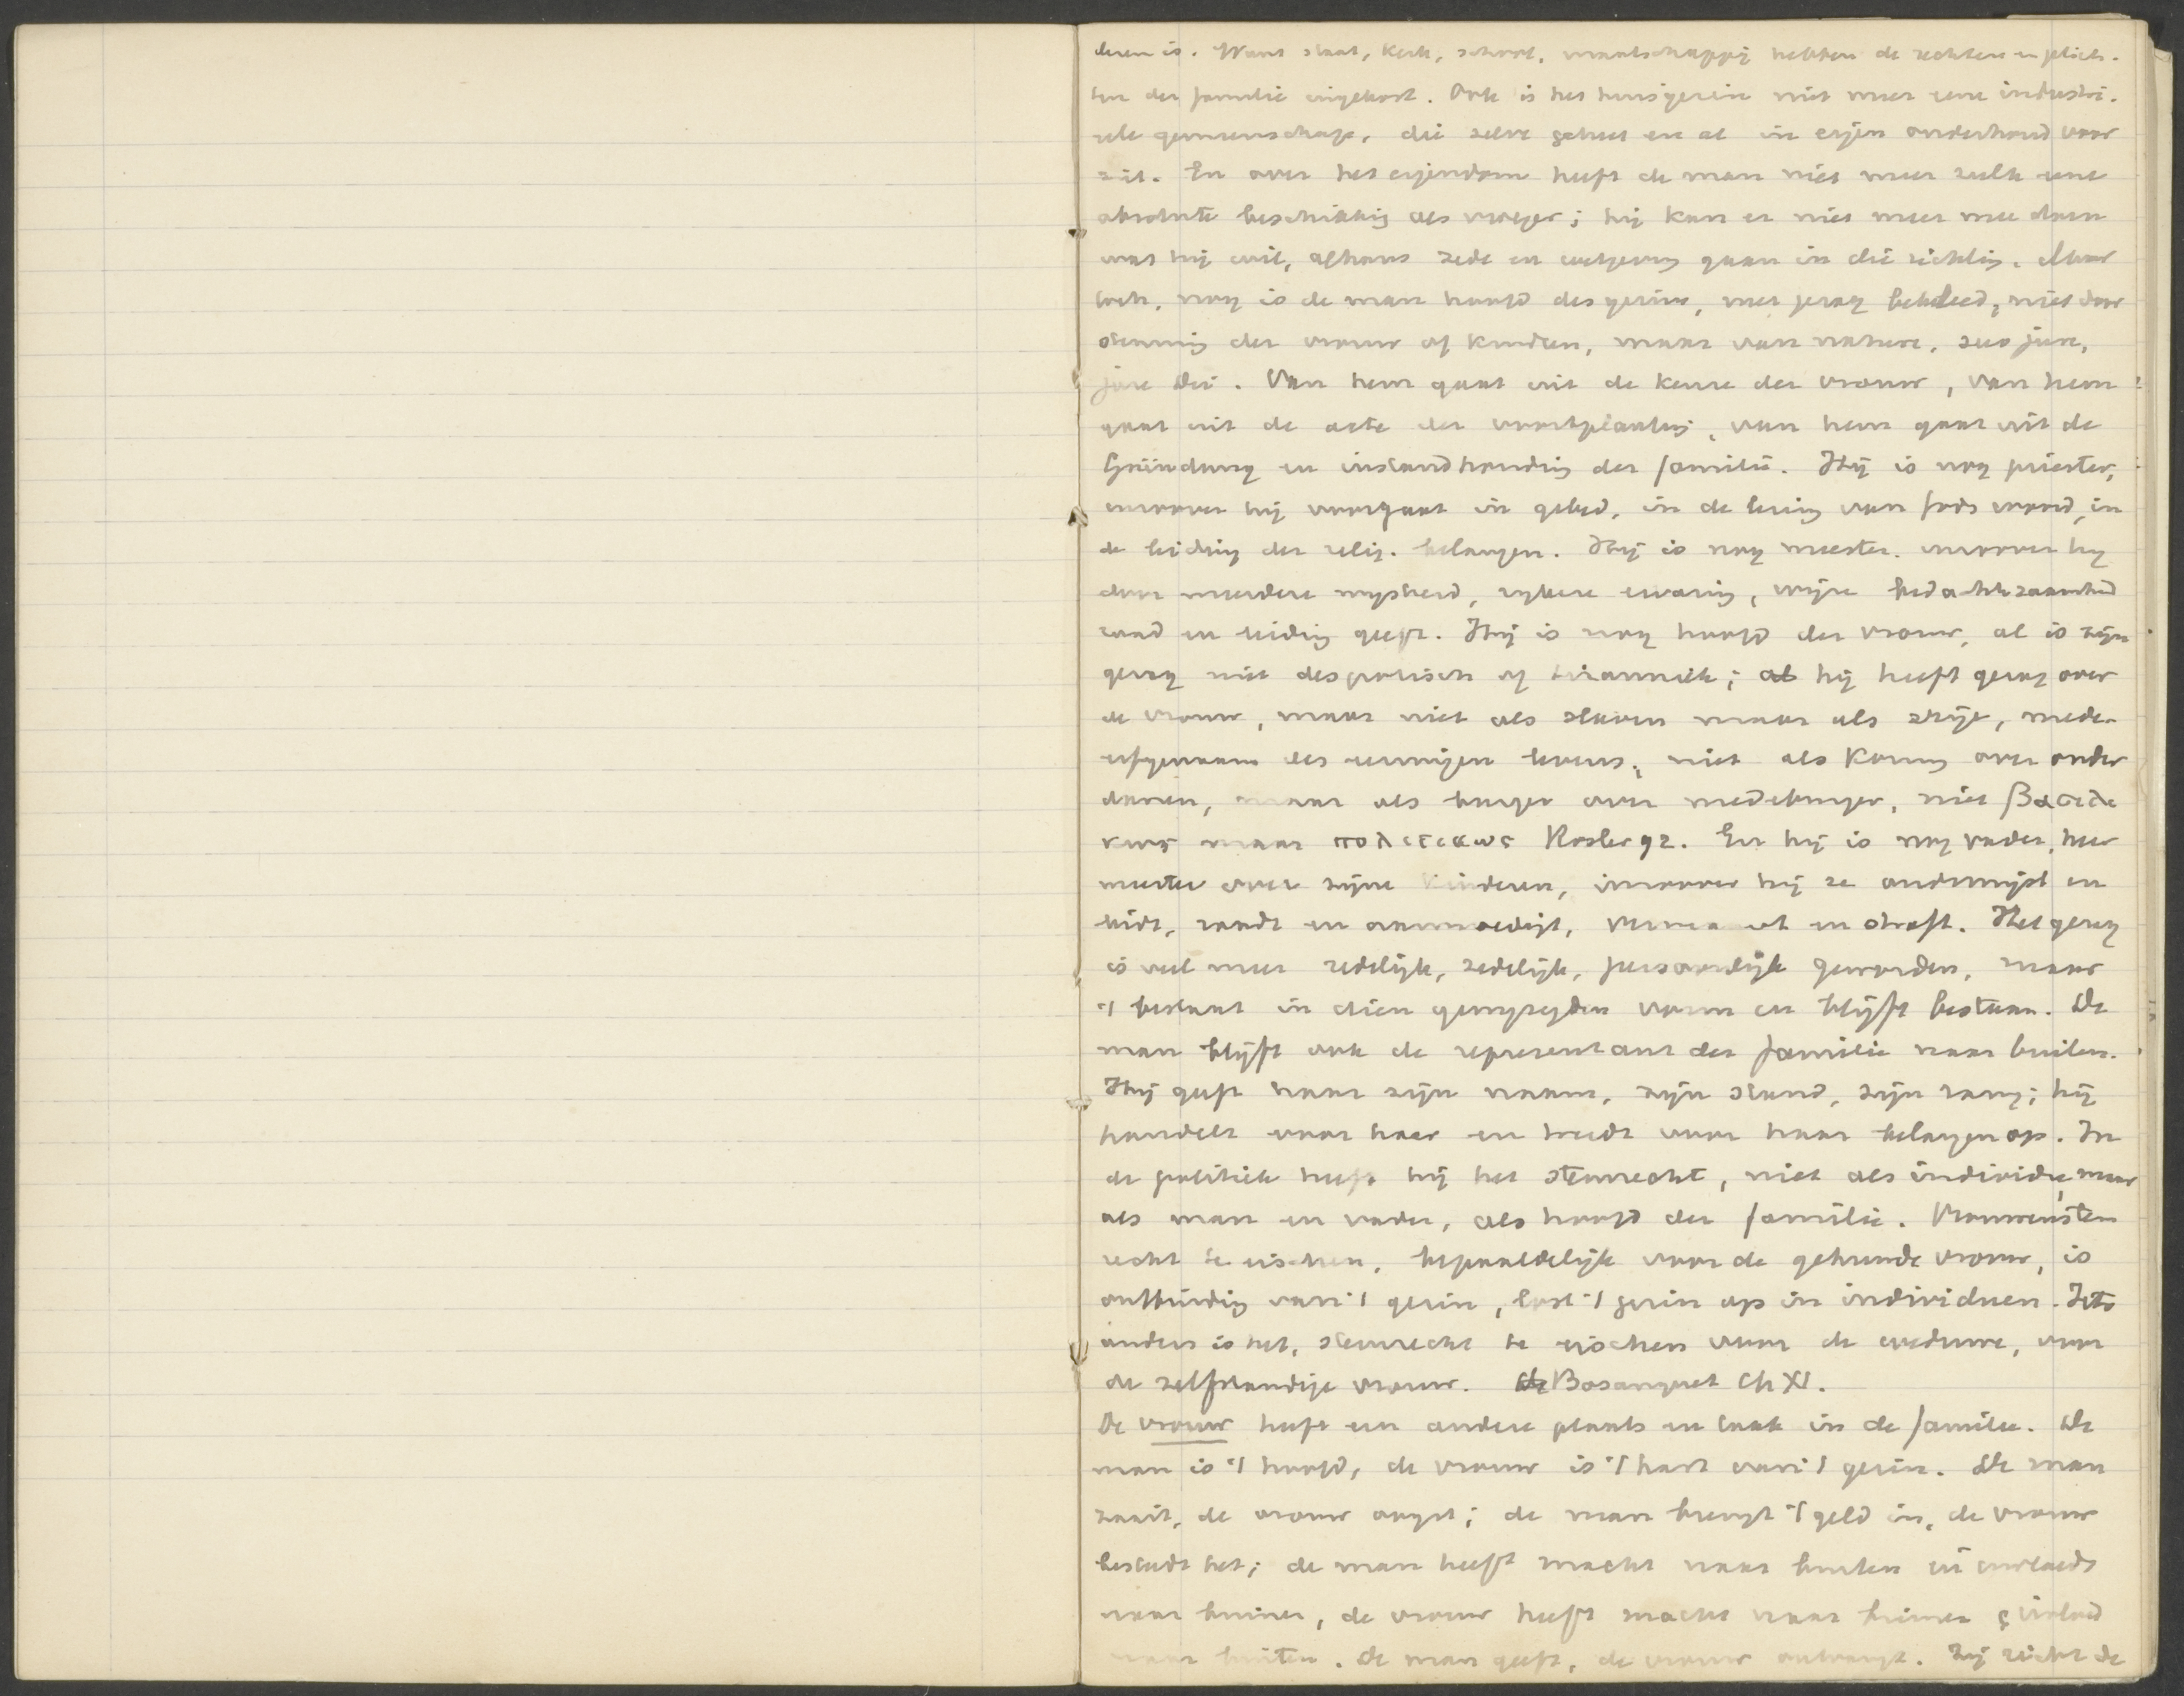 deren is. Want staat, kerk, school, maatschappij hebben de rechten en plich-
ten der familie ingekort. Ook is het huisgezin niet meer eene industri-
eele gemeenschap, die zelve geheel en al in eigen onderhoud voor
ziet. En over het eigendom heeft de man niet meer zulk eene
absolute beschikking als vroeger; hij kan er niet meer mee doen
wat hij wil, althans zede en wetgeving gaan in die richting. Maar
toch, nog is de man hoofd des gezins, met gezag bekleed, niet door
stemming der vrouw of kinderen, maar van nature, suo jure,
jure Dei. Van hem gaat uit de keuze der vrouw, van hem
gaat uit de acte der voortplanting, van hem gaat uit de
Gründung en instandhouding der familie. Hij is nog priester,
inzoover hij voorgaat in gebed, in de lezing van Gods woord, in
de leiding der relig. belangen. Hij is nog meester, inzoover hij
door meerdere wijsheid, rijkere ervaring, wijze bedachtzaamheid
raad en leiding geeft. Hij is nog hoofd der vrouw, al is zijn
gezag niet despotisch of tiranniek; hij heeft gezag over
de vrouw, maar niet als slavin maar als vrije, mede-
erfgenaam des eeuwigen levens, niet als koning over onder
danen, maar als burger over medeburger, niet βασιλι
κως maar πολιτικως Kosler 92. En hij is nog vader, heer
meester over zijne kinderen, inzoover hij ze onderwijst en
leidt, raadt en aanmoedigt, vermaant en straft. Het gezag
is veel meer redelijk, zedelijk, persoonlijk geworden, maar
't bestaat in dien gewijzigden vorm en blijft bestaan. De
man blijft ook de representant der familie naar buiten.
Hij geeft haar zijn naam, zijn stand, zijn rang; hij
handelt voor haar en treedt voor haar belangen op. In
de politiek heeft hij het stemrecht, niet als individu, maar
als man en vader, als hoofd der familie. Vrouwenstem
recht te eischen, bepaaldelijk voor de gehuwde vrouw, is
ontbinding van 't gezin, lost 't gezin op in individuen. Iets
anders is het, stemrecht te eischen voor de weduwe, voor
de zelfstandige vrouw. Bosanquet Ch XI.
De vrouw heeft een andere plaats en taak in de familie. De
man is 't hoofd, de vrouw is 't hart van 't gezin. De man
zaait, de vrouw oogst; de man brengt 't geld in, de vrouw
besteedt het; de man heeft macht naar buiten en invloed
naar binnen, de vrouw heeft macht naar binnen & invloed
naar buiten. De man geeft, de vrouw ontvangt. Zij richt de